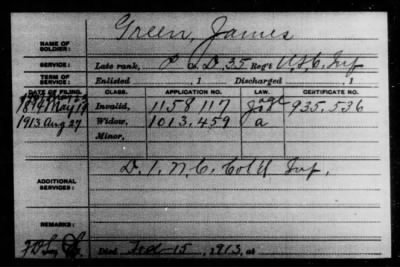 Green, James
NAME OF SOLDIER:
SERVICE: Late rank, P Co D, 35 Reg't U.S.C. Inf
TERM OF SERVICE: Enlisted , 1 Discharged , 1
DATE OF FILING. CLASS. APPLICATION NO. LAW. CERTIFICATE NO.
1894 May Invalid, 1158117 935.536
1913 Aug 27 Widow, 1013.459 a
Minor,
ADDITIONAL SERVICES: D. 1. N.C. Col'd Inf.
REMARKS:
Died Feb 15, 1913, at